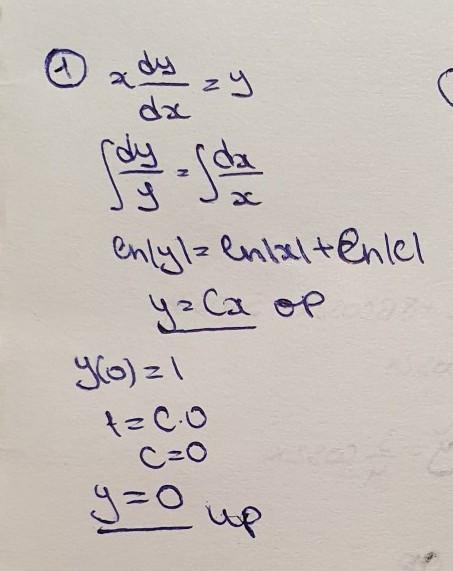 ① x dy/dx = y
∫ dy/y = ∫ dx/x
ln|y| = ln|x| + ln|c|
y = Cx op
y(0) = 1
1 = C·0
C = 0
y = 0 up